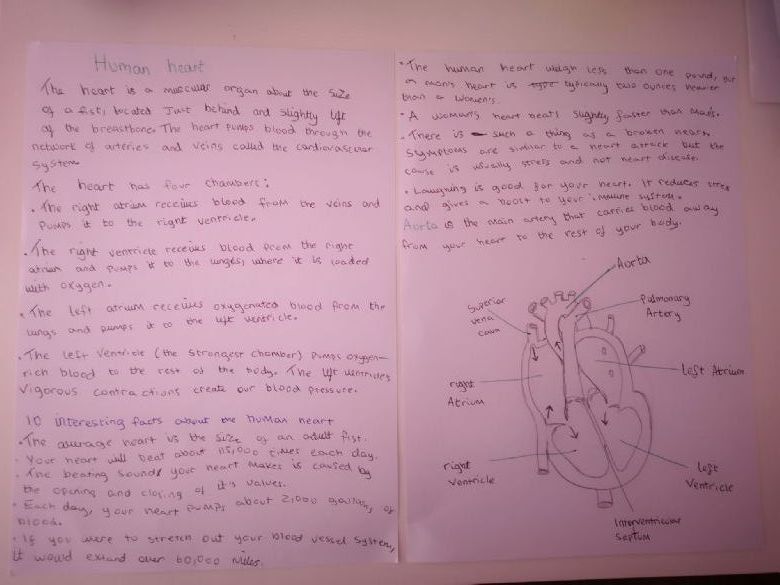 Human heart
The heart is a muscular organ about the size
of a fist, located just behind and slightly left
of the breastbone. The heart pumps blood through the
network of arteries and veins called the cardiovascular
system
The heart has four chambers:
• The right atrium receives blood from the veins and
pumps it to the right ventricle.
• The right ventricle receives blood from the right
atrium and pumps it to the lungs, where it is loaded
with oxygen.
• The left atrium receives oxygenated blood from the
lungs and pumps it to the left ventricle.
• The left ventricle (the strongest chamber) pumps oxygen-
rich blood to the rest of the body. The left ventricles
vigorous contractions create our blood pressure.
10 interesting facts about the human heart
• The average heart is the size of an adult fist.
• Your heart will beat about 115,000 times each day.
• The beating sound your heart makes is caused by
the opening and closing of it's valves.
• Each day, your heart pumps about 2,000 of
blood.
• If you were to stretch out your blood vessel system,
it would extend over 60,000 miles.
• The human heart weigh less than one pound, but
a man's heart is typically two ounces heavier
than a women's.
• A woman's heart beats slightly faster than man's.
• There is such a thing as a broken heart.
Symptoms are similar to a heart attack but the
cause is usually stress and not heart disease.
• Laughing is good for your heart. It reduces stress
and gives a boost to your immune system.
Aorta is the main artery that carries blood away
from your heart to the rest of your body.
Aorta
Superior
vena
cava
Pulmonary
Artery
left Atrium
right
Atrium
right
ventricle
left
ventricle
Interventricular
septum